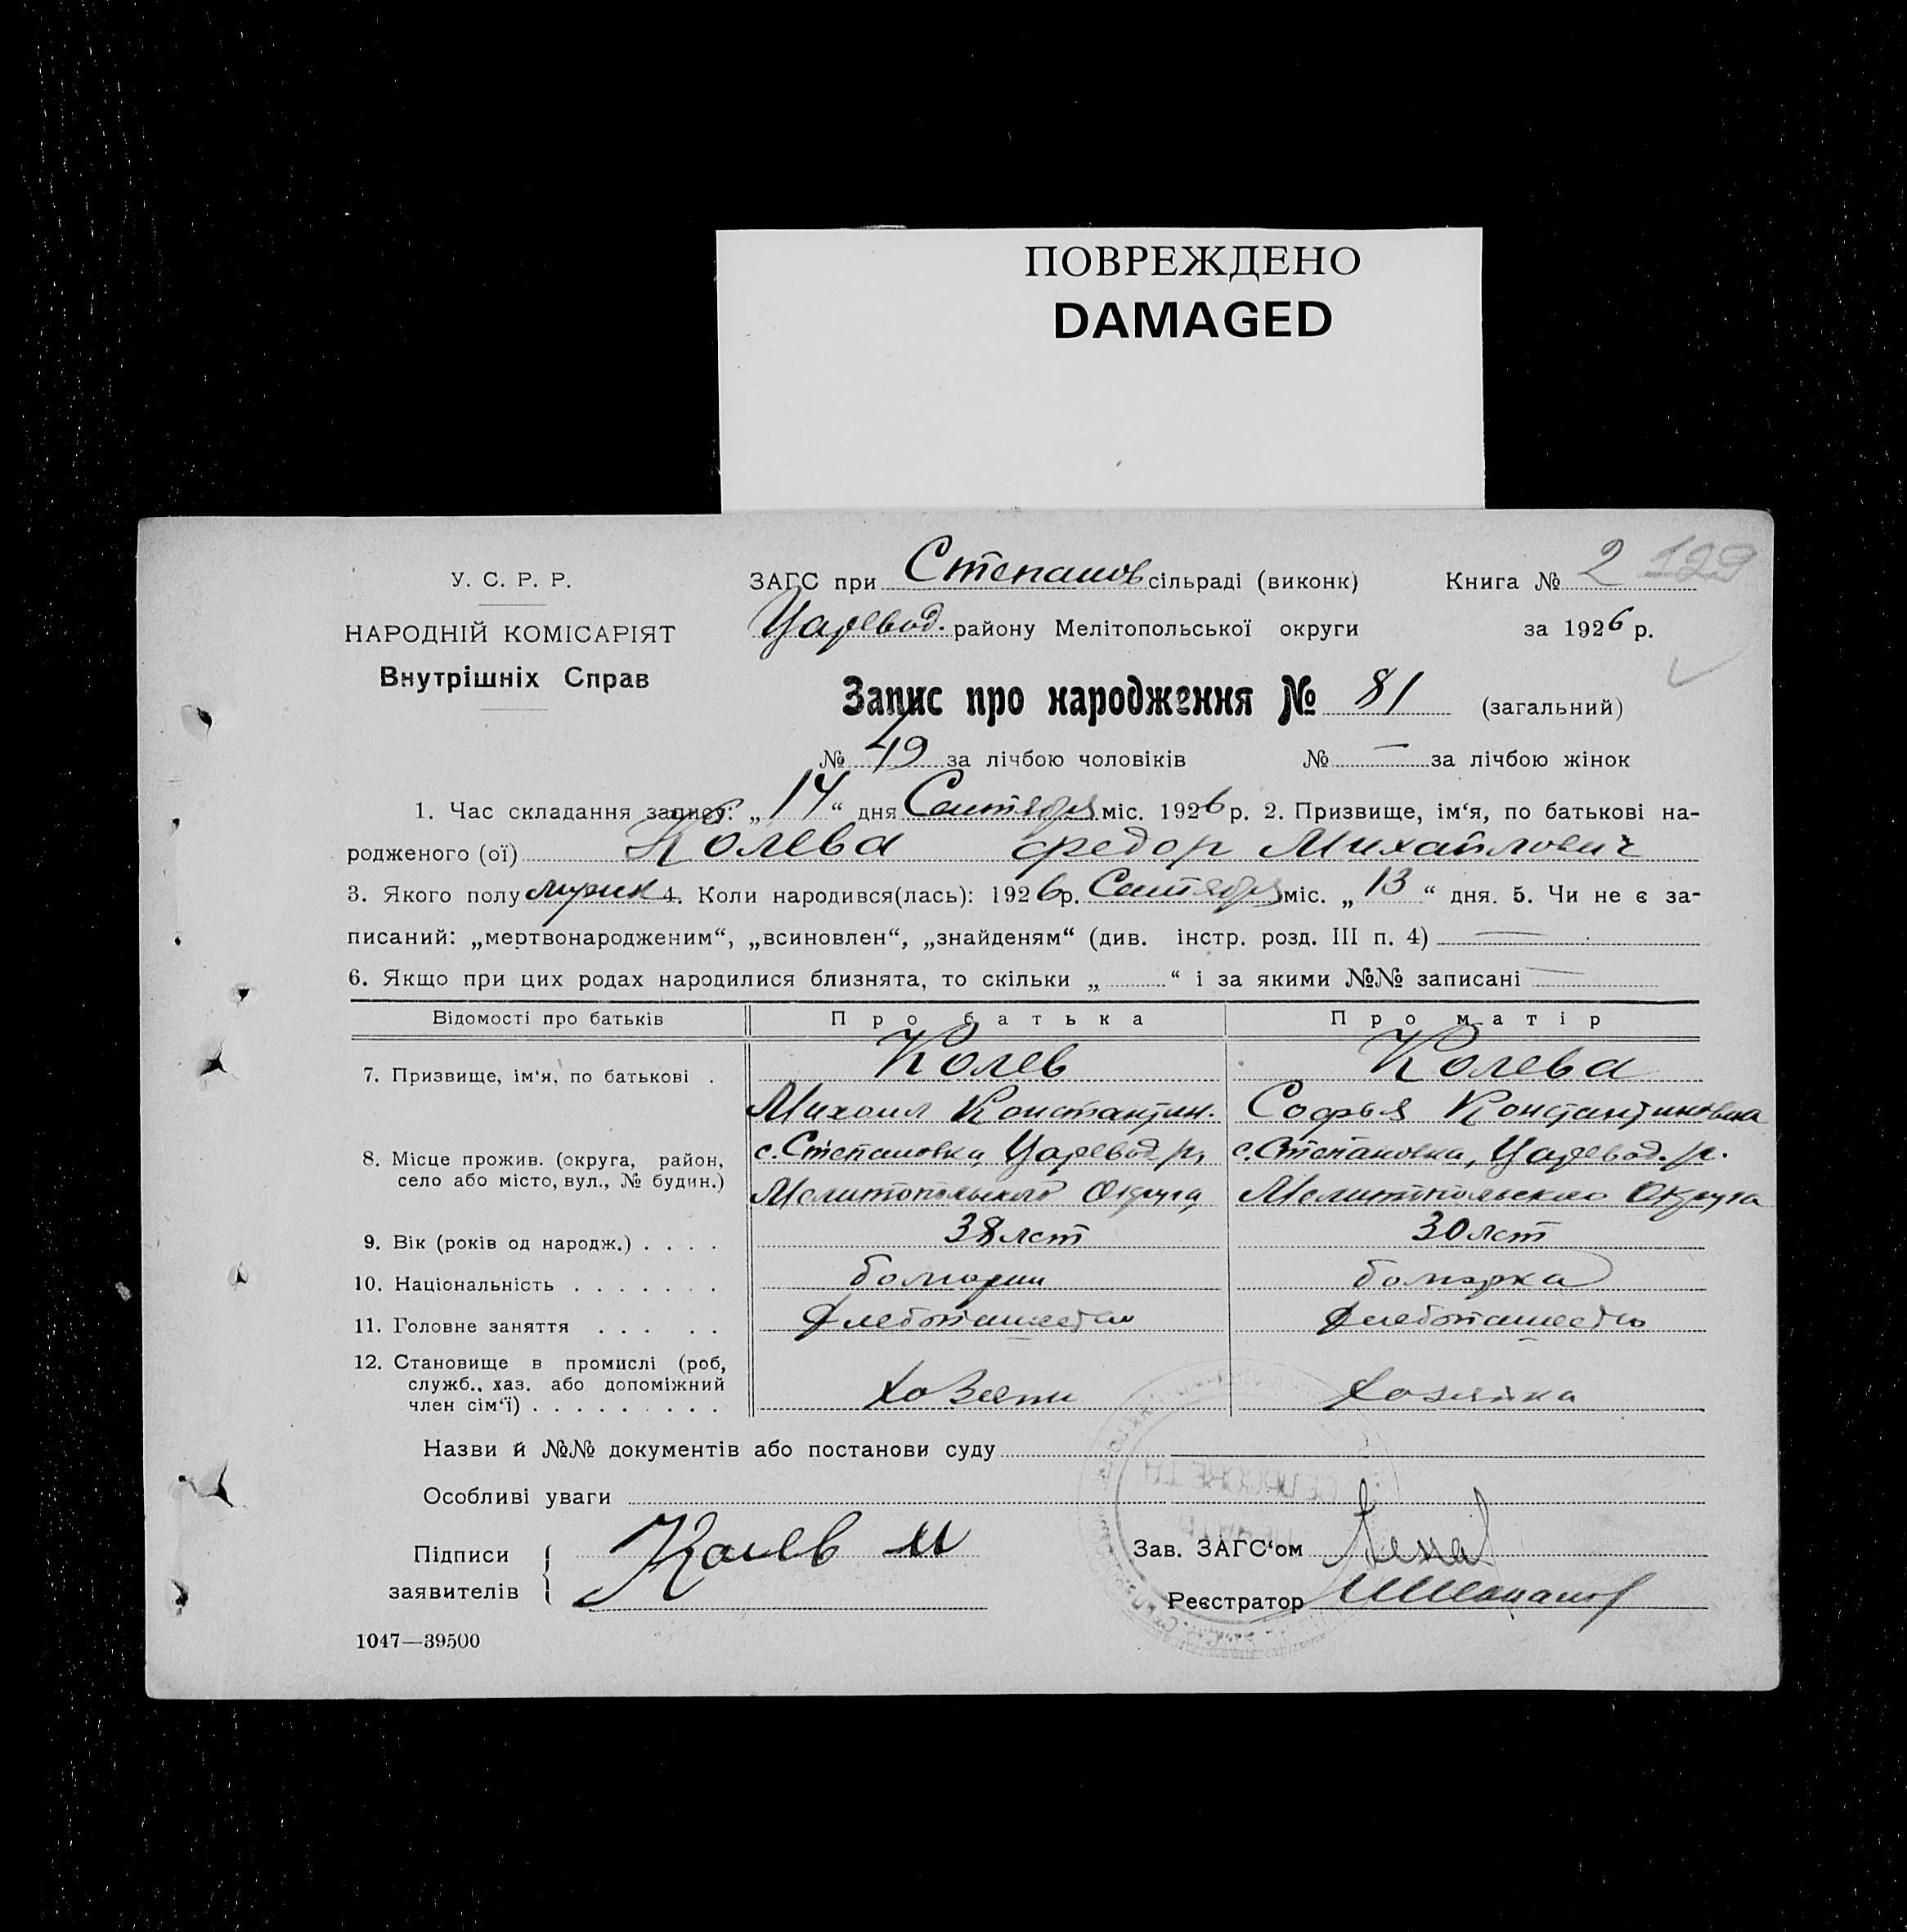 ПОВРЕЖДЕНО
DAMAGED
У. С. Р. Р.
НАРОДНІЙ КОМІСАРІЯТ
Внутрішніх Справ
ЗАГС при Степанов сільраді (виконк)
Книга № 2 129
Царевод. району Мелітопольської округи
за 1926 р.
Запис про народження № 81 (загальний)
№ 49 за лічбою чоловіків № — за лічбою жінок
1. Час складання запису: „14“ дня Сентября міс. 1926 р. 2. Призвище, ім‘я, по батькові на-
родженого (ої) Колева Федор Михайлович
3. Якого полу мужск 4. Коли народився(лась): 1926 р. Сентября міс. „13“ дня. 5. Чи не є за-
писаний: „мертвонародженим“, „всиновлен“, „знайденям“ (див. інстр. розд. III п. 4) —
6. Якщо при цих родах народилися близнята, то скільки „ “ і за якими №№ записані —
Відомості про батьків Про батька Про матір
7. Призвище, ім‘я, по батькові . Колев Колева
Михаил Константин. Софья Константиновна
8. Місце прожив. (округа, район, с. Степановка, Царевод. р, с. Степановка, Царевод. р.
село або місто, вул., № будин.) Мелитопольского Округа, Мелитопольского Округа
9. Вік (років од народж.) . . . . 38 лет 30 лет
10. Національність . . . . . . . болгарин болгарка
11. Головне заняття . . . . . Хлебопашество Хлебопашество
12. Становище в промислі (роб,
служб., хаз. або допоміжний
член сім‘ї) . . . . . . . . . Хозяин Хозяйка
Назви й №№ документів або постанови суду
Особливі уваги
Підписи
заявителів
Колев М
Зав. ЗАГС‘ом
Реєстратор
1047—39500